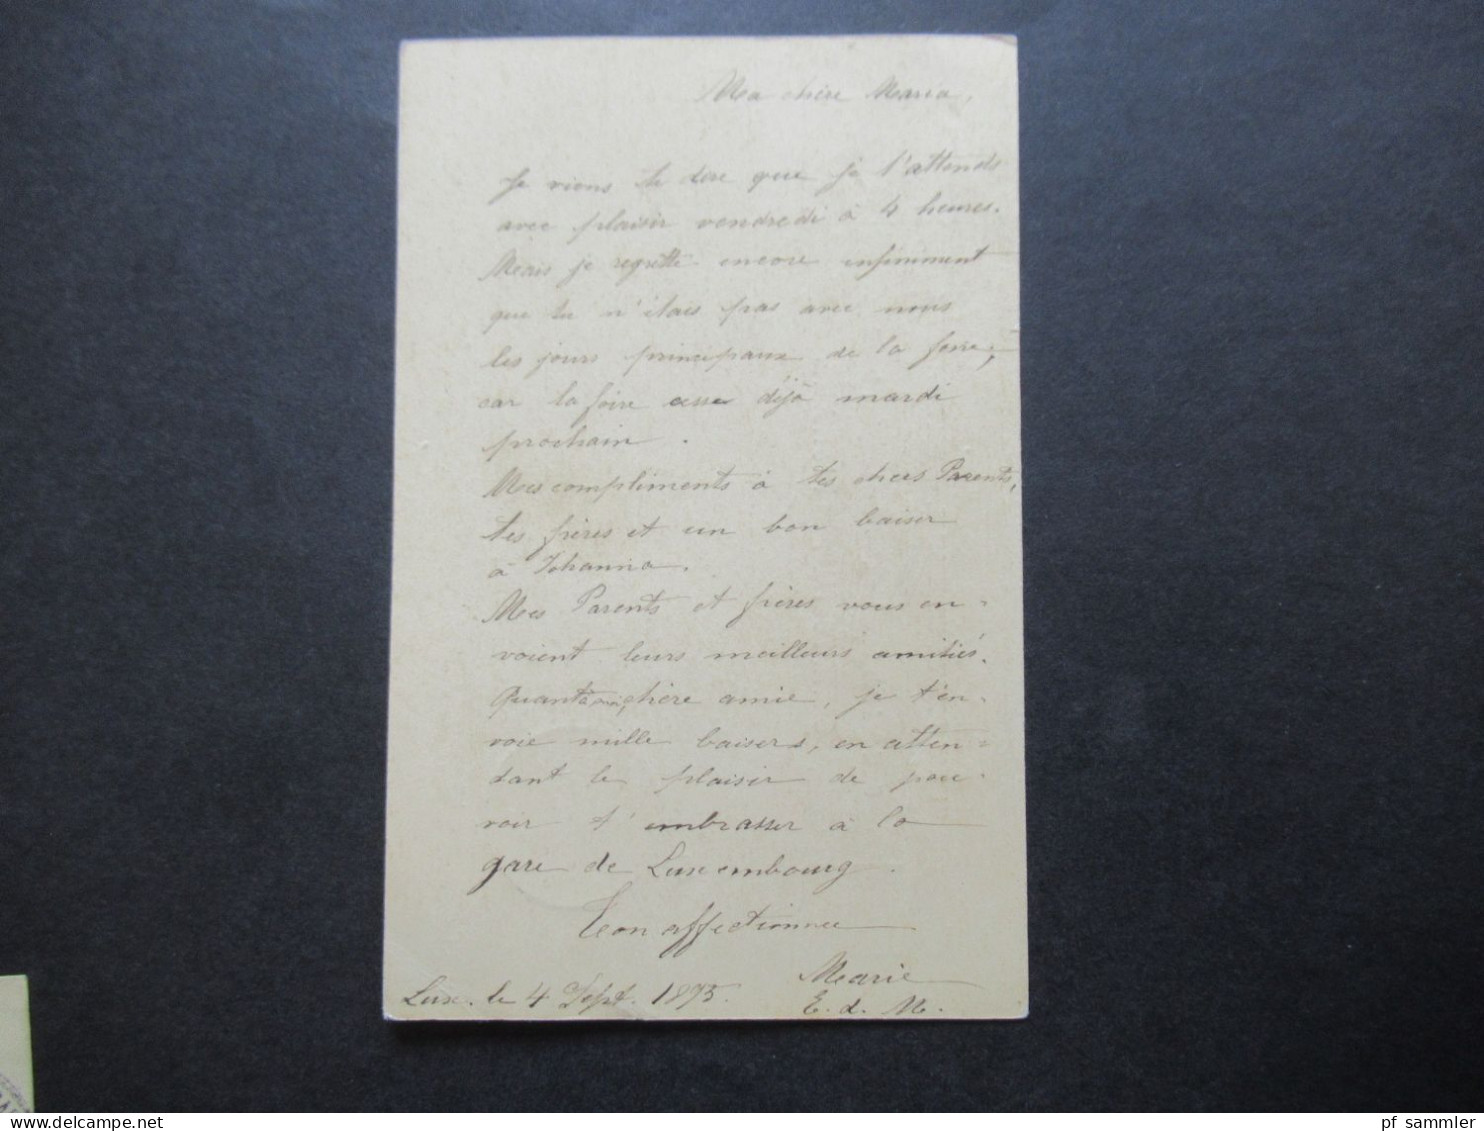 Ma chère Maria,
Je viens te dire que je t'attends
avec plaisir vendredi à 4 heures.
Mais je regrette encore infiniment
que tu n'étais pas avec nous
les jours principaux de la foire;
car la foire cesse déjà mardi
prochain.
Mes compliments à tes chers Parents,
tes frères et un bon baiser
à Johanna.
Mes Parents et frères vous en-
voient leurs meilleurs amitiés.
Quant à moi, chère amie, je t'en-
voie mille baisers, en atten-
dant le plaisir de pou-
voir t'embrasser à la
gare de Luxembourg.
Ton affectionnée
Marie
Lux. le 4 Sept. 1895.
E. d. M.
pf sammler
delcampe.net